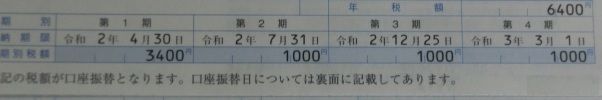 年税額 6400円
期別 第1期 第2期 第3期 第4期
納期限 令和 2年 4月30日 令和 2年 7月31日 令和 2年12月25日 令和 3年 3月 1日
期別税額 3400円 1000円 1000円 1000円
記の税額が口座振替となります。口座振替日については裏面に記載してあります。